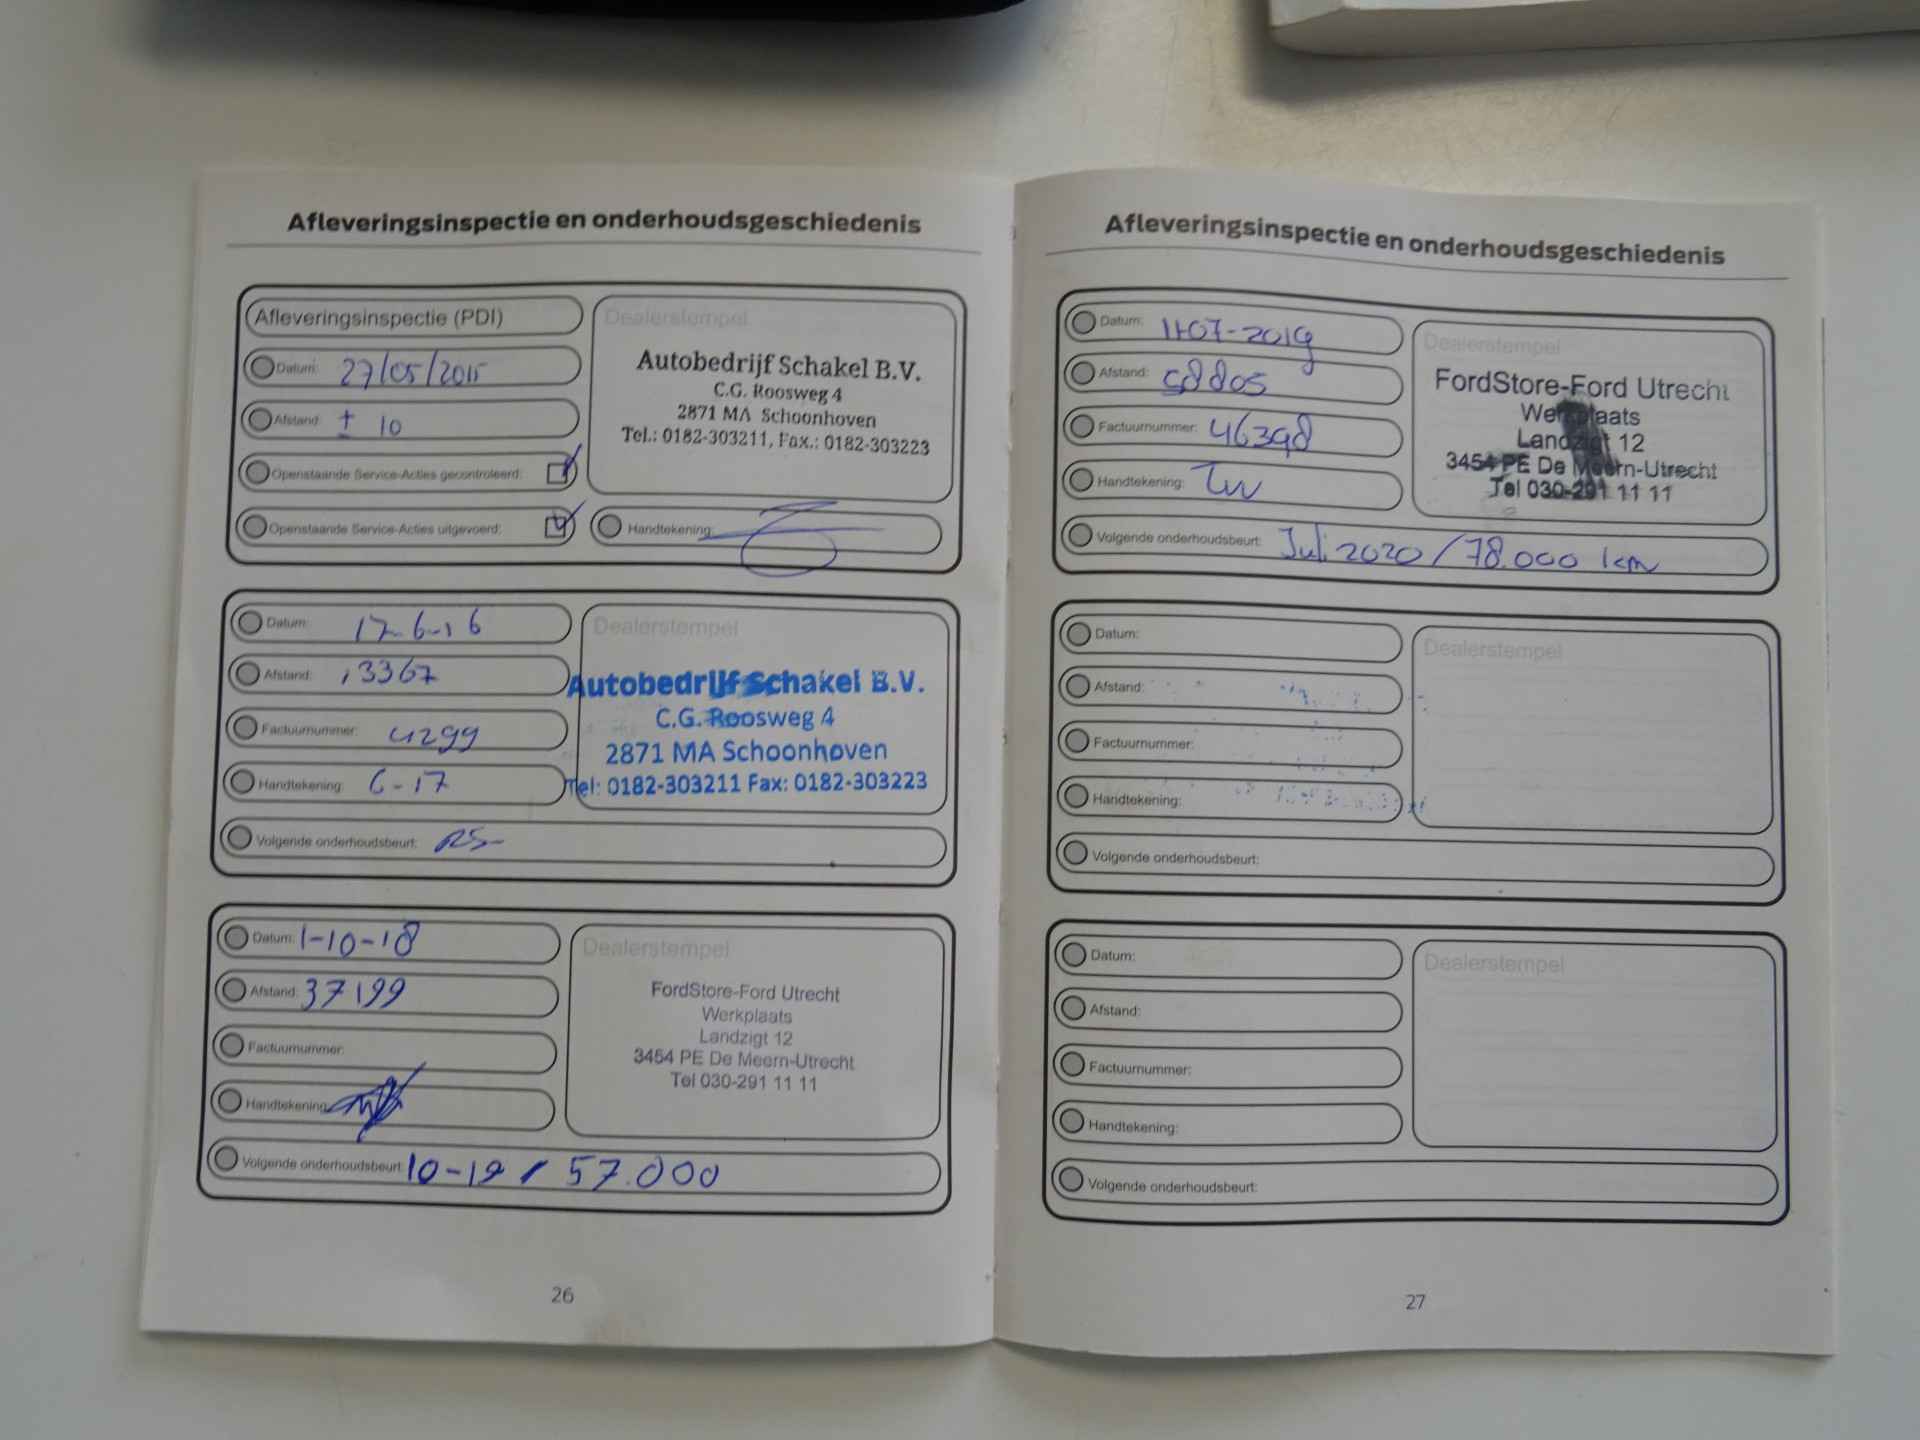 Afleveringsinspectie en onderhoudsgeschiedenis
Afleveringsinspectie (PDI)
Datum: 27/05/2015
Afstand: ± 10
Openstaande Service-Acties gecontroleerd:
Openstaande Service-Acties uitgevoerd:
Dealerstempel
Autobedrijf Schakel B.V.
C.G. Roosweg 4
2871 MA Schoonhoven
Tel.: 0182-303211, Fax.: 0182-303223
Handtekening:
Datum: 17-6-16
Afstand: 13367
Factuurnummer: 4299
Handtekening: 6-17
Volgende onderhoudsbeurt:
Dealerstempel
Autobedrijf Schakel B.V.
C.G. Roosweg 4
2871 MA Schoonhoven
Tel: 0182-303211 Fax: 0182-303223
Datum: 1-10-18
Afstand: 37199
Factuurnummer:
Handtekening:
Volgende onderhoudsbeurt: 10-19 / 57.000
Dealerstempel
FordStore-Ford Utrecht
Werkplaats
Landzigt 12
3454 PE De Meern-Utrecht
Tel 030-291 11 11
26
Afleveringsinspectie en onderhoudsgeschiedenis
Datum: 11-07-2019
Afstand: 58805
Factuurnummer: 46398
Handtekening:
Volgende onderhoudsbeurt: Juli 2020 / 78.000 km
Dealerstempel
FordStore-Ford Utrecht
Werkplaats
Landzigt 12
3454 PE De Meern-Utrecht
Tel 030-291 11 11
Datum:
Afstand:
Factuurnummer:
Handtekening:
Volgende onderhoudsbeurt:
Dealerstempel
Datum:
Afstand:
Factuurnummer:
Handtekening:
Volgende onderhoudsbeurt:
Dealerstempel
27